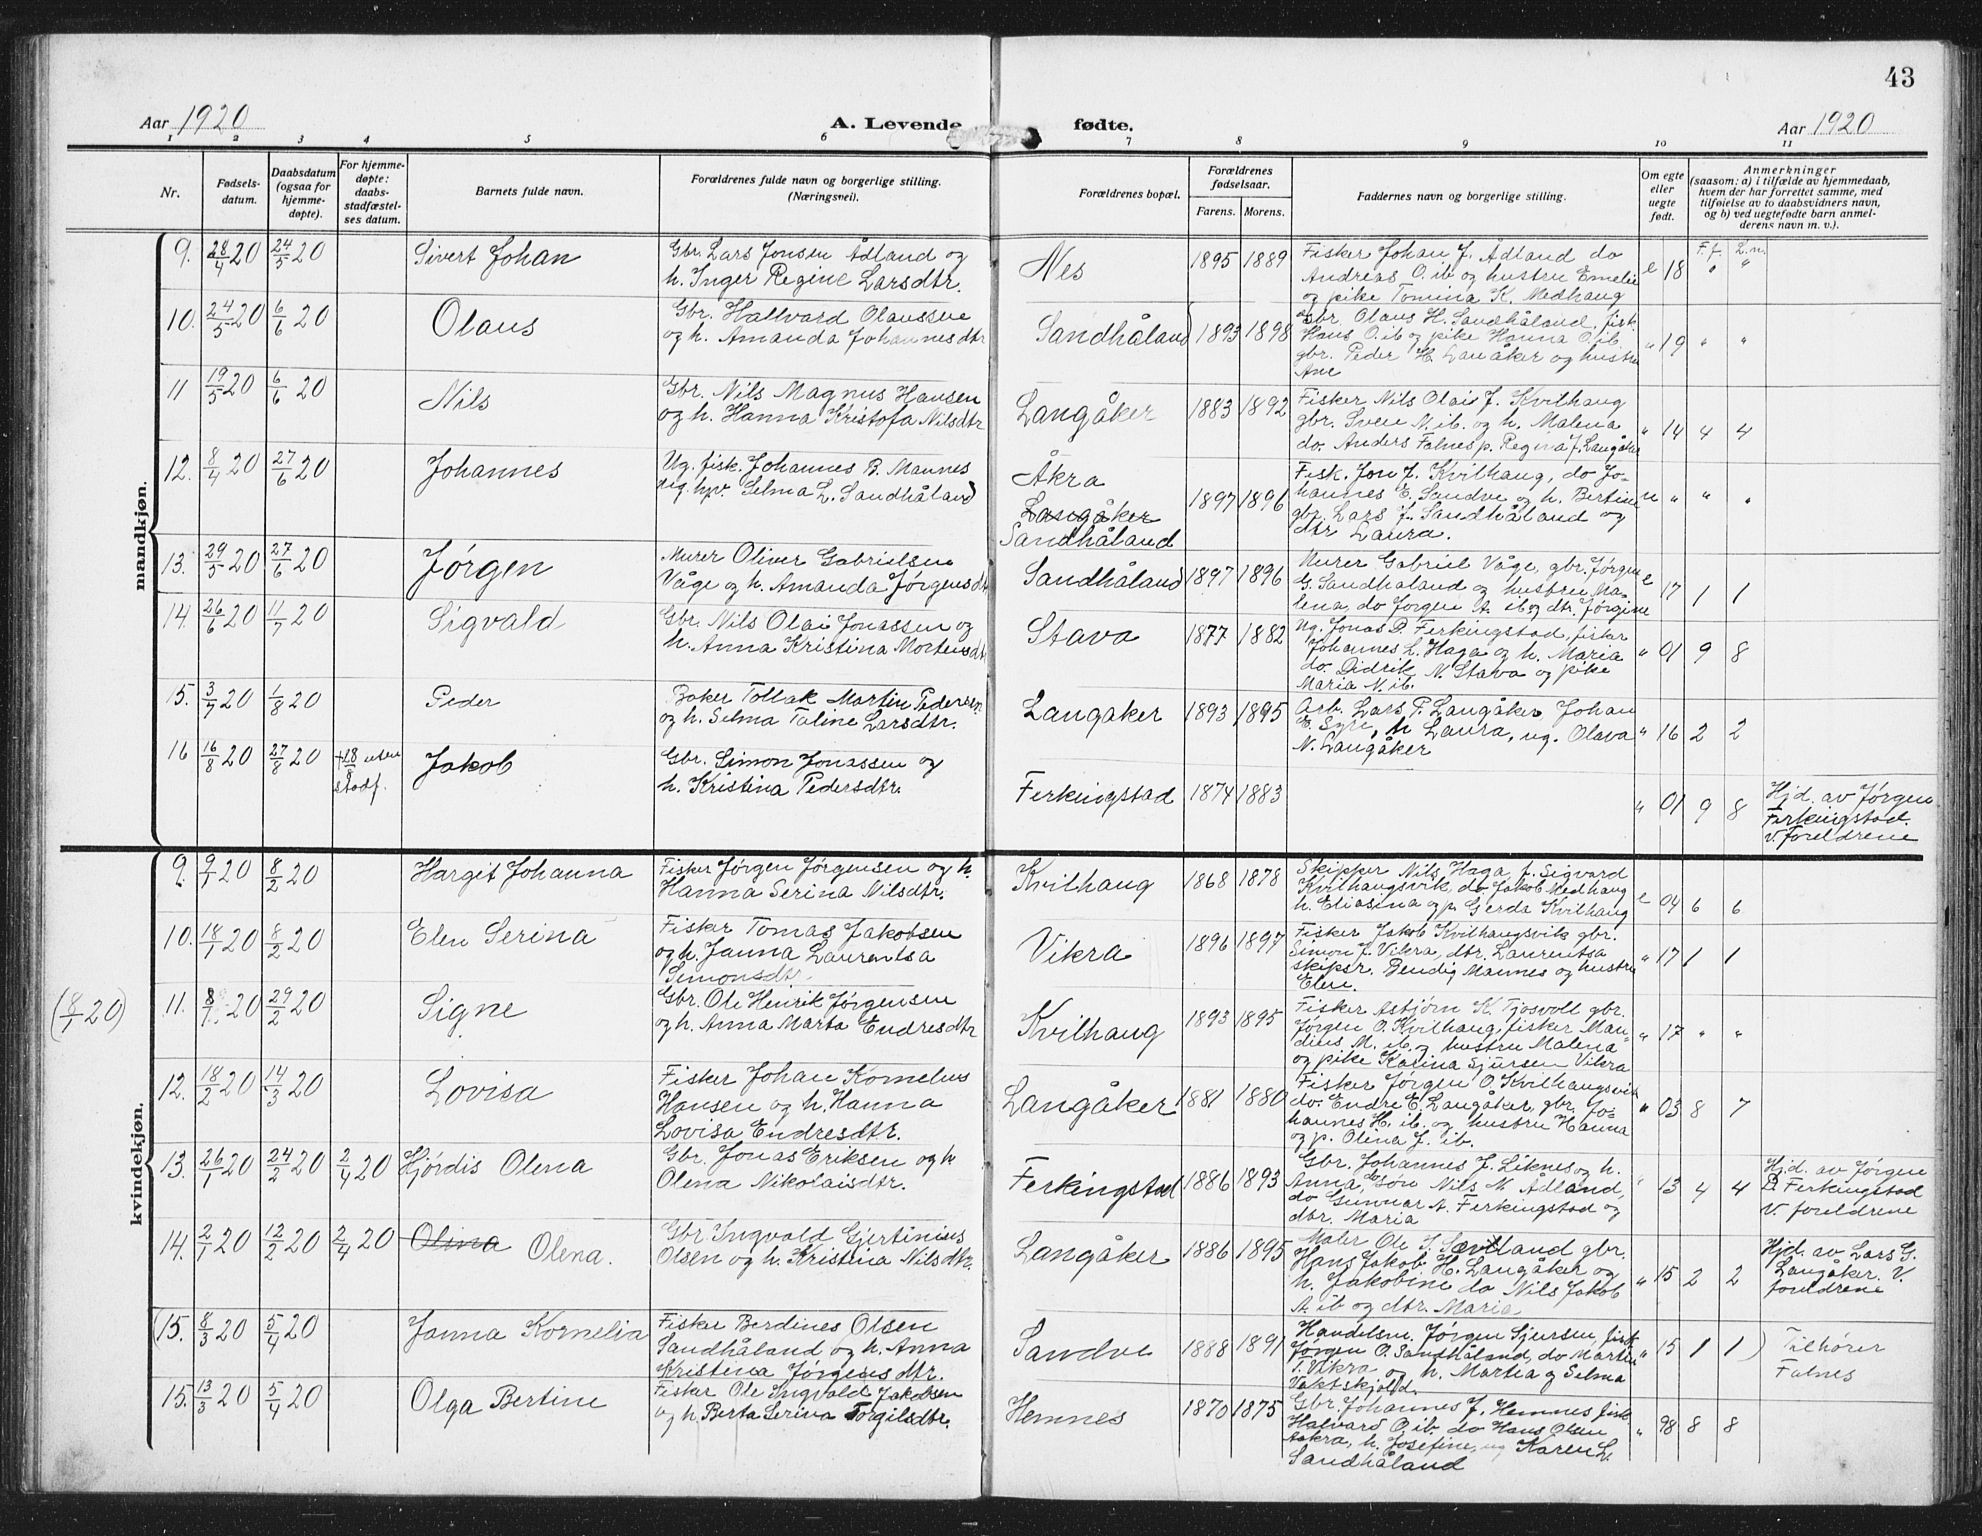 43
Aar 1920
A. Levende fødte.
Aar 1920
1 2 3 4 5 6 7 8 9 10 11
Nr.
Fødsels-
datum.
Daabsdatum
(ogsaa for
hjemme-
døpte).
For hjemme-
døpte:
daabs-
stadfæstel-
ses datum.
Barnets fulde navn.
Forældrenes fulde navn og borgerlige stilling.
(Næringsvei).
Forældrenes bopæl.
Forældrenes
fødselsaar.
Farens. Morens.
Faddernes navn og borgerlige stilling.
Om egte
eller
uegte
født.
Anmerkninger
(saasom: a) i tilfælde av hjemmedaab,
hvem der har forrettet samme, med
tilføielse av to daabsvidners navn,
og b) ved uegtefødte barn anmel-
derens navn m. v.).
F.f. L.m.
mandkjøn.
9. 28/4 20 24/5 20 Sivert Johan
Gbr. Lars Jonsen Ådland og
h. Inger Regine Larsdtr.
Nes 1895 1889
Fisker Johan J. Ådland do
Andreas O. ib og hustru Emelie
og pike Tomina K. Medhaug
e 18 " "
10. 24/5 20 6/6 20 Olaus
Gbr. Hallvard Olaussen
og h. Amanda Johannesdtr
Sandhåland 1893 1898
Gbr. Olaus H. Sandhåland, fisk.
Hans O. ib og pike Hanna O. ib.
gbr. Peder H. Langåker og hustru
Ane
" 19 " "
11 19/5 20 6/6 20 Nils
Gbr. Nils Magnus Hansen
og h. Hanna Kristofa Nilsdtr
Langåker 1883 1892
Fisker Nils Olai J. Kvilhaug
gbr. Sven N. ib. og h. Malena
do. Anders Falnes p. Regina J. Langåker
" 14 4 4
12. 8/4 20 27/6 20 Johannes
Ug. fisk. Johannes B. Mannes
ug. hpv. Selma L. Sandhåland
Åkra
Langåker
Sandhåland
1897 1896
Fisk. Jon J. Kvilhaug, do Jo-
hannes E. Sandve og h. Bertine
gbr. Lars J. Sandhåland og
dtr Laura.
u " " "
13. 29/5 20 27/6 20 Jørgen
Murer Oliver Gabrielsen
Våge og h. Amanda Jørgensdtr
Sandhåland 1897 1896
Murer Gabriel Våge, gbr. Jørgen
G. Sandhåland og hustru Ma-
lena, do Jørgen A. ib og dtr. Jørgine
e 17 1 1
14. 26/6 20 11/7 20 Sigvald
Gbr. Nils Olai Jonassen og
h. Anna Kristina Mortensdtr
Stava 1877 1882
Ug. Jonas D. Ferkingstad, fisker
Johannes L. Haga og h. Maria
do. Didrik N. Stava og pike
Maria N. ib.
" 01 9 8
15. 3/7 20 1/8 20 Peder
Baker Tollak Martin Pedersen
og h. Selma Taline Larsdtr.
Langaker 1893 1895
Arb. Lars P. Langåker Johan
E. Syre, h Laura, ug. Olava
N. Langåker
" 16 2 2
16 16/8 20 27/8 20 +28/8 uten
stadf.
Jakob
Gbr. Simon Jonassen og
h. Kristina Pedersdtr.
Ferkingstad 1874 1883
" 01 9 8
Hjd. av Jørgen
Ferkingstad.
V. Foreldrene
kvindekjøn.
9. 9/1 20 8/2 20 Hargit Johanna
Fisker Jørgen Jørgensen og h.
Hanna Serina Nilsdtr.
Kvilhaug 1868 1878
Skipper Nils Haga f. Sigvard
Kvilhaugsvik, do Jakob Medhaug
h. Eliasina og p. Gerda Kvilhaug
e 04 6 6
10. 18/1 20 8/2 20 Elen Serina
Fisker Tomas Jakobsen
og h. Janna Laurentsa
Simonsdtr.
Vikra 1896 1897
Fisker Jakob Kvilhaugsvik gbr.
Simon J. Vikra, dtr. Laurentsa
skipsr. Bendig Mannes og hustru
Elen.
" 17 1 1
(8/1 20)
11. 8/1 20 29/2 20 Signe
Gbr. Ole Henrik Jørgensen
og h. Anna Marta Endresdtr
Kvilhaug 1893 1895
Fisker Asbjørn K. Tjosvoll gbr.
Jørgen O. Kvilhaug, fisker Man-
dius M. ib. og hustru Malena
og pike Kalina Sjursen Vikra
" 17 " "
12. 18/2 20 14/3 20 Lovisa
Fisker Johan Kornelius
Hansen og h. Hanna
Lovisa Endresdtr.
Langåker 1881 1880
Fisker Jørgen O. Kvilhaugsvik
do. Endre E. Langåker, gbr. Jo-
hannes H. ib. og hustru Hanna
og p. Olina J. ib.
" 03 8 7
13. 26/1 20 24/2 20 2/4 20 Hjørdis Olena
Gbr. Jonas Eriksen og h
Olena Nikolaisdtr.
Ferkingstad 1886 1893
Gbr. Johannes J. Liknes og h.
Anna, do Søn Nils N. Ådland,
do Gunnar A. Ferkingstad og
dtr. Maria
" 13 4 4
Hjd. av Jørgen
D Ferkingstad
V. foreldrene
14. 2/1 20 12/2 20 2/4 20 Olina Olena.
Gbr Ingvald Gjertinius
Olsen og h. Kristina Nilsdtr.
Langåker 1886 1895
Maler Ole J. Sævland gbr.
Hans Jakob H. Langåker og
h. Jakobine do Nils Jakob
A. ib og dtr. Maria
" 15 2 2
Hjd. av Lars G.
Langåker. V.
foreldrene
(15. 8/3 20 5/4 20 Janna Kornelia
Fisker Berdines Olsen
Sandhåland og h. Anna
Kristina Jørgensdtr.
Sandve 1888 1891
Handelsm. Jørgen Sjursen, fisk
Jørgen O. Sandhåland, do Martin
T. Vikra og h. Martia og Selma
Vaktskjold.
" 15 1 1 )
Tilhører
Falnes
15. 13/3 20 5/4 20 Olga Bertine
Fisker Ole Ingvald Jakobsen
og h. Berta Serina Torgilsdtr.
Hemnes 1870 1875
Gbr. Johannes J. Hemnes fisk
Halvard O. ib. do Hans Olsen
Aakra, h. Josefine, ug Karen L.
Sandhåland
" 98 8 8